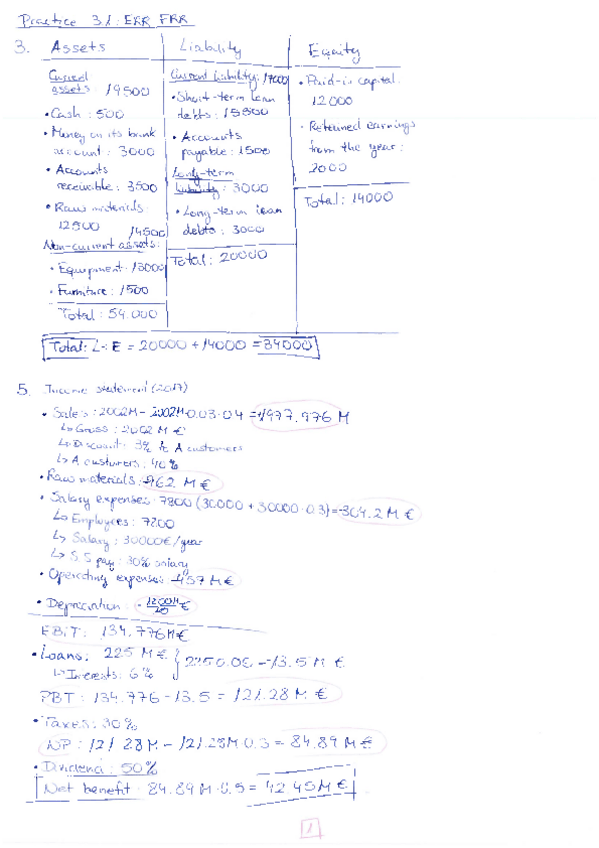 Practice 3.1: ERR FRR
3. Assets
Liability
Equity
Current assets 19500
• Cash: 500
• Money on its bank account: 3000
• Accounts receivible: 3500
• Raw materials: 12500
14500
Non-current assets:
• Equipment: 13000
• Furniture: 1500
Total: 34.000
Current liability: 17000
• Short-term loan debts: 15500
• Accounts payable: 1500
Long-term liability: 3000
• Long-term loan debts: 3000
Total: 20000
• Paid-in capital: 12000
• Retained earnings from the year: 2000
Total: 14000
Total: L+E = 20000 + 14000 = 34000
5. Income statement (2017)
• Sales: 2002M - 2002M·0.03·0.4 = 1977.976 M
↳ Gross: 2002 M €
↳ Discount: 3% to A customers
↳ A customers: 40%
• Raw materials: -962 M €
• Salary expenses: 7800 (30000 + 30000·0.3) = -304.2 M €
↳ Employees: 7800
↳ Salary: 30000€/year
↳ S.S pay: 30% salary
• Operating expenses: -457 M €
• Depreciation: - 1200M/10 €
EBIT: 134.776 M €
• Loans: 225 M €
↳ Interests: 6%
225·0.06 = -13.5 M €
PBT: 134.776 - 13.5 = 121.28 M €
• Taxes: 30%
NP: 121.28 M - 121.28M·0.3 = 84.89 M €
• Dividend: 50%
Net benefit: 84.89 M·0.5 = 42.45 M €
1